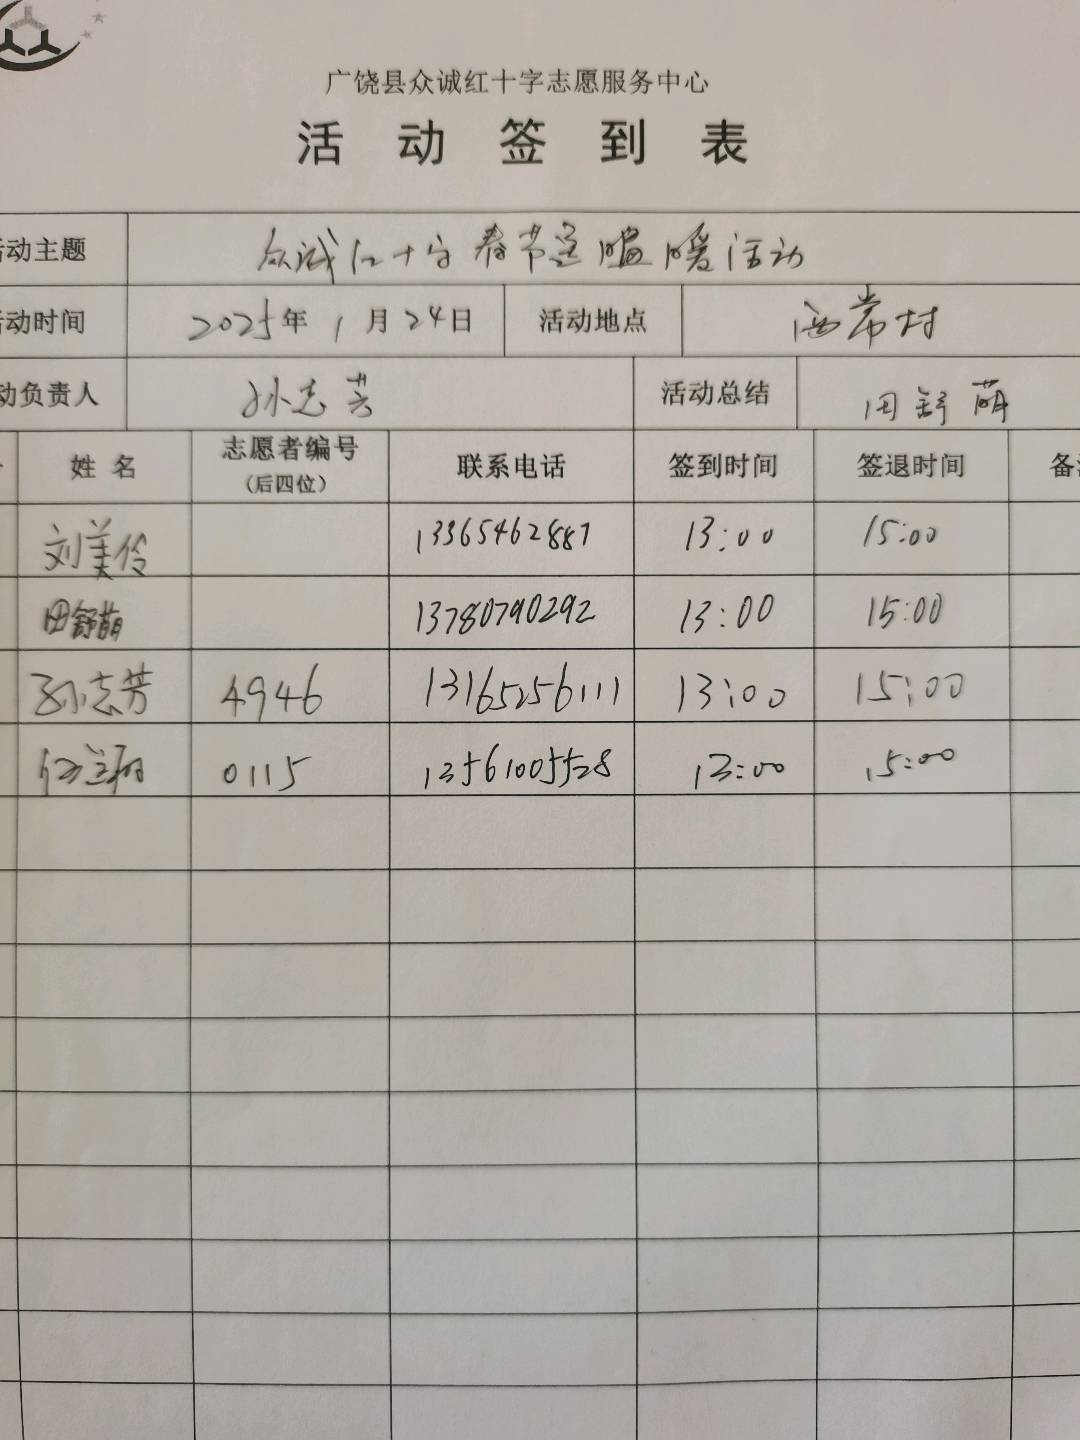 广饶县众诚红十字志愿服务中心
活动签到表
活动主题 众诚红十字春节送温暖活动
活动时间 2025年1月24日 活动地点 西常村
动负责人 孙志芳 活动总结 田舒萌
姓名 志愿者编号 联系电话 签到时间 签退时间 备注
(后四位)
刘美伶 13365462887 13:00 15:00
田舒萌 13780790292 13:00 15:00
孙志芳 4946 13165256111 13:00 15:00
0115 13561005528 13:00 15:00